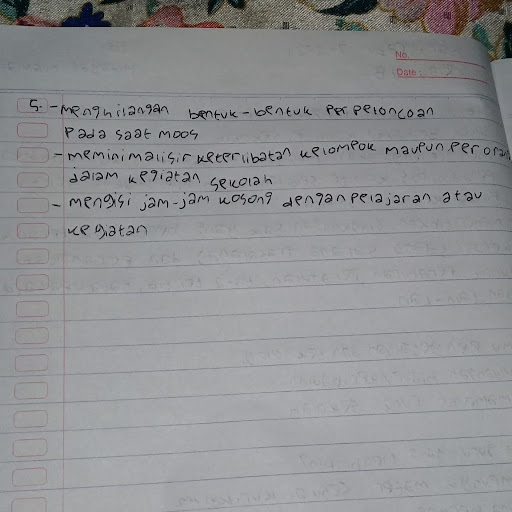 No.
Date:
5. - menghilangan bentuk-bentuk perpeloncoan
pada saat moos
- meminimalisir keterlibatan kelompok maupun perorang
dalam kegiatan sekolah
- mengisi jam-jam kosong dengan pelajaran atau
kegiatan